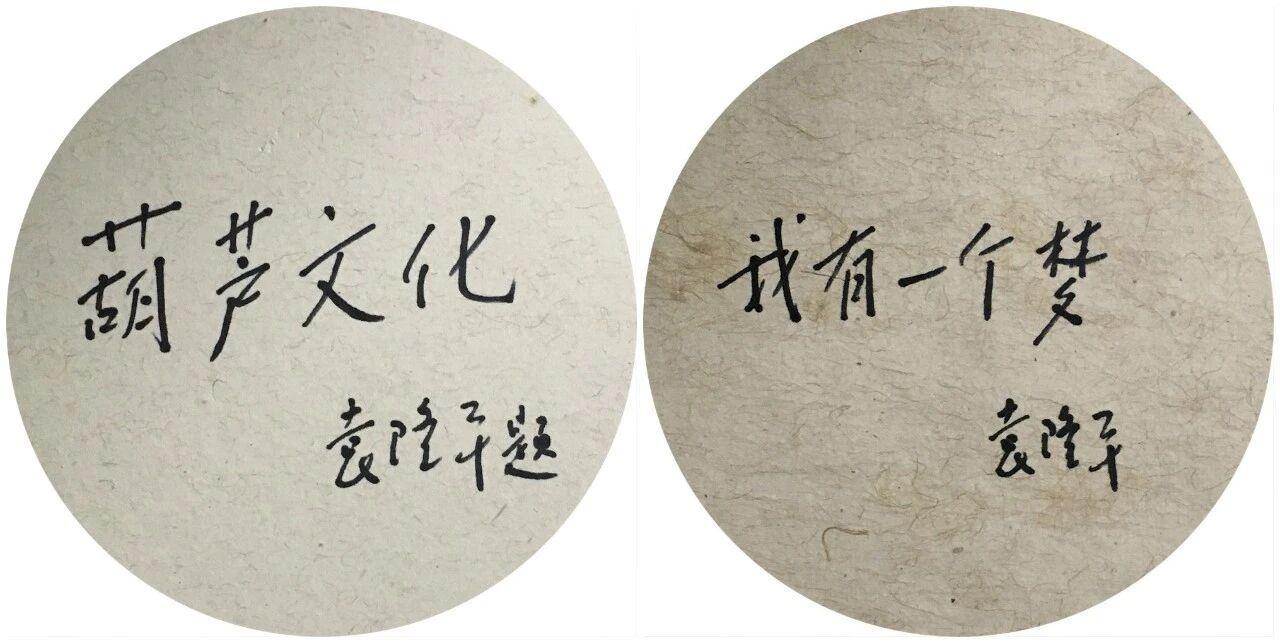 葫芦文化
袁隆平题
我有一个梦
袁隆平